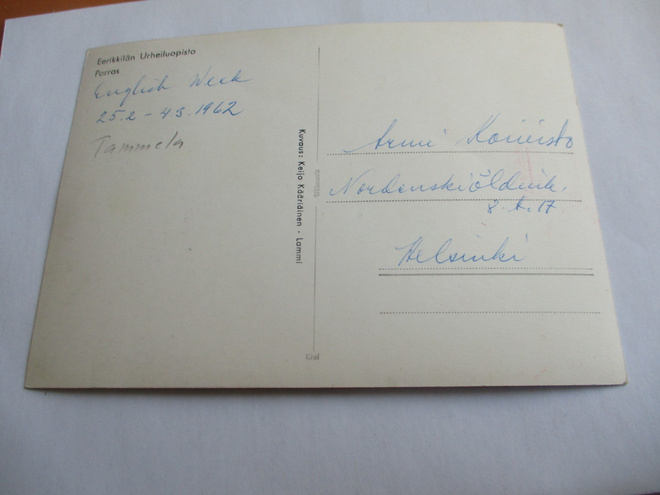 Eerikkilän Urheiluopisto
Porras
English Week
25.2 - 4.3.1962
Tammela
Kuvaus: Keijo Kääriäinen - Lammi
Armi Koivisto
Nordenskiöldink.
8. A. 17.
Helsinki